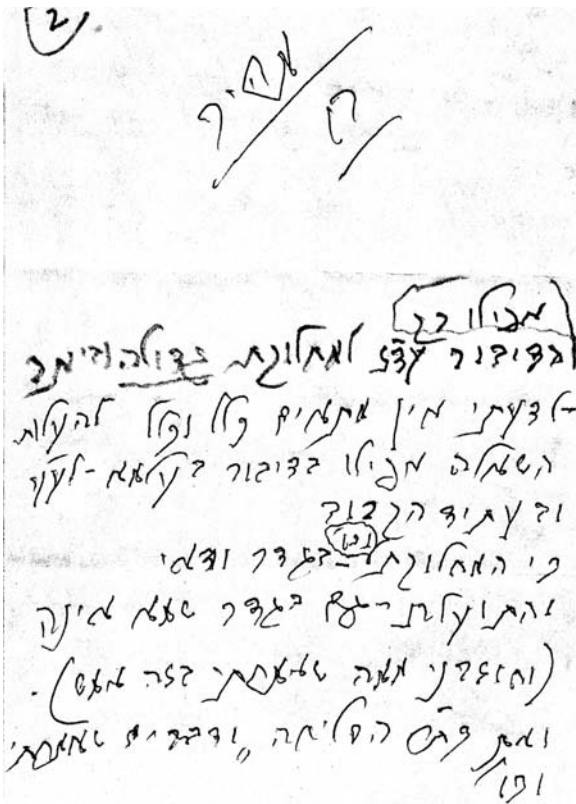 2.
מהיר
אפילו
בדיבור עד"ז למחלוקת גדולה
-לדעתי אין מתאים כלל וכלל להעלות
השאלה אפילו בדיבור בעלמא -לע"ע
ובעתיד הקרוב
כי המחלוקת וכו' -בגדר ודאי
והתועלת -גם בגדר שמא אינה
(וחוזרני ממה שאמרתי בזה אמש).
הסליחה, ודברים שאמרתי
וכו'